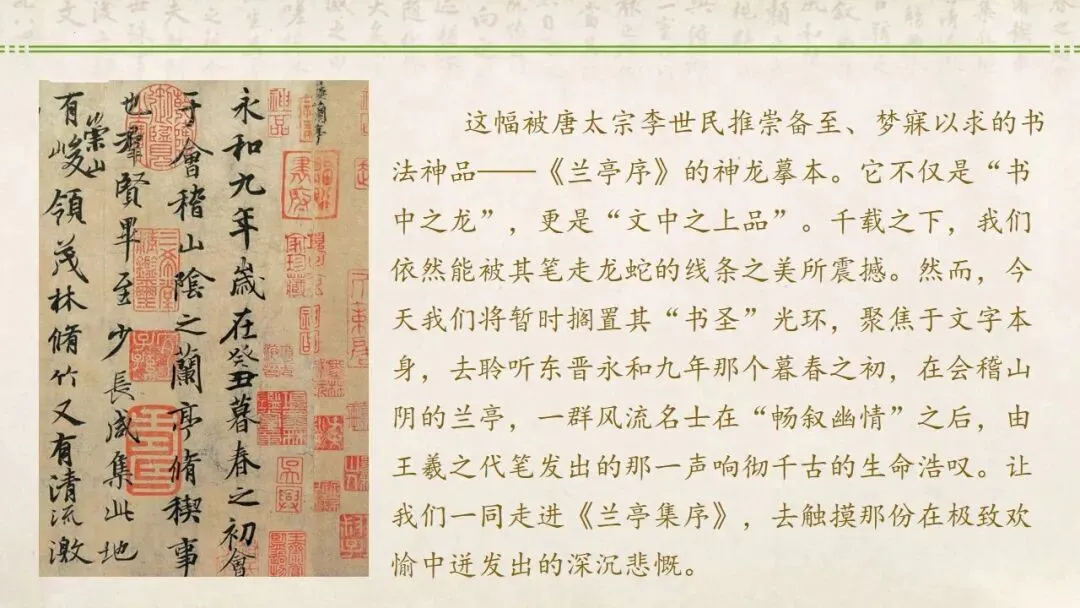 永和九年歲在癸丑暮春之初會
于會稽山陰之蘭亭脩稧事
也羣賢畢至少長咸集此地
有崇山峻領茂林脩竹又有清流激
这幅被唐太宗李世民推崇备至、梦寐以求的书
法神品——《兰亭序》的神龙摹本。它不仅是“书
中之龙”，更是“文中之上品”。千载之下，我们
依然能被其笔走龙蛇的线条之美所震撼。然而，今
天我们将暂时搁置其“书圣”光环，聚焦于文字本
身，去聆听东晋永和九年那个暮春之初，在会稽山
阴的兰亭，一群风流名士在“畅叙幽情”之后，由
王羲之代笔发出的那一声响彻千古的生命浩叹。让
我们一同走进《兰亭集序》，去触摸那份在极致欢
愉中迸发出的深沉悲慨。